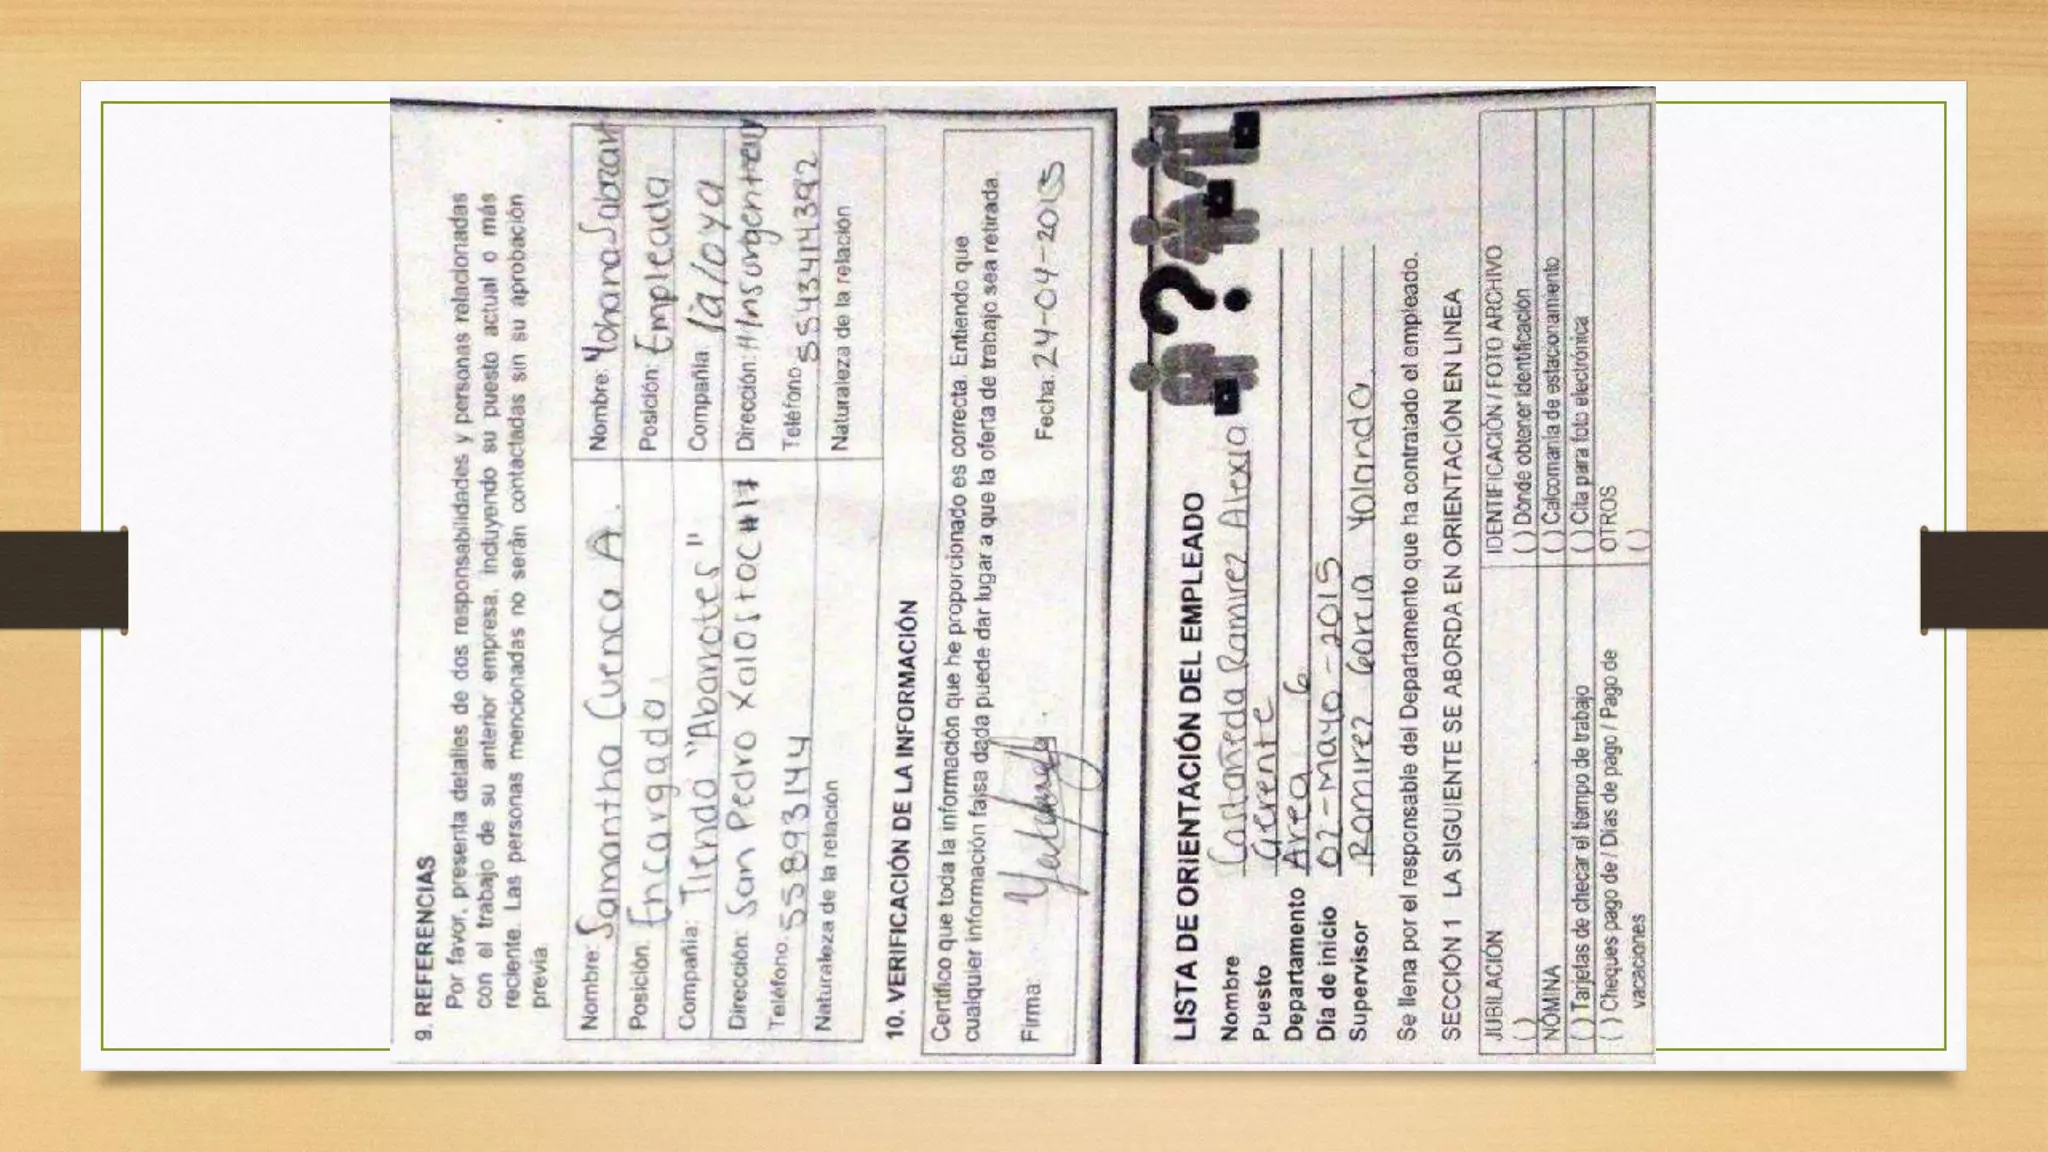 9. REFERENCIAS
Por favor, presenta detalles de dos responsabilidades y personas relacionadas
con el trabajo de su anterior empresa, incluyendo su puesto actual o más
reciente. Las personas mencionadas no serán contactadas sin su aprobación
previa
Nombre: Samantha Cuenca A.
Posición: Encargada.
Compañia: Tienda "Abarrotes"
Dirección: San Pedro Xalostoc #17
Teléfono: 55893144
Naturaleza de la relación
Nombre: Yohana
Posición: Empleada
Compañia: la loya
Dirección:
Teléfono: 5543414392
Naturaleza de la relación
10. VERIFICACIÓN DE LA INFORMACIÓN
Certifico que toda la información que he proporcionado es correcta. Entiendo que
cualquier información falsa dada puede dar lugar a que la oferta de trabajo sea retirada.
Firma: Fecha: 24-04-2015
LISTA DE ORIENTACIÓN DEL EMPLEADO
Nombre Castañeda Ramirez Alexia
Puesto Gerente
Departamento Area 6
Día de inicio 02-Mayo-2015
Supervisor Ramirez Garcia Yolanda.
Se llena por el responsable del Departamento que ha contratado el empleado.
SECCIÓN 1 LA SIGUIENTE SE ABORDA EN ORIENTACIÓN EN LINEA
JUBILACIÓN
( )
NÓMINA
( ) Tarjetas de checar el tiempo de trabajo
( ) Cheques pago de / Días de pago / Pago de
vacaciones
IDENTIFICACIÓN / FOTO ARCHIVO
( ) Dónde obtener identificación
( ) Calcomanía de estacionamiento
( ) Cita para foto electrónica
OTROS
( )